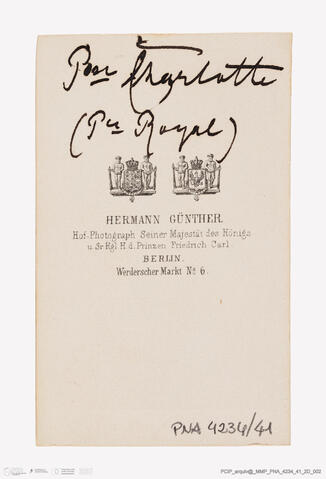 Pss Charlotte
(Pss Royal)
HERMANN GÜNTHER.
Hof-Photograph Seiner Majestät des Königs
u. Sr. Kgl. H. d. Prinzen Friedrich Carl.
BERLIN.
Werderscher Markt No 6.
PNA 4234/41
PCIP_arquiv@_MMP_PNA_4234_41_2D_002